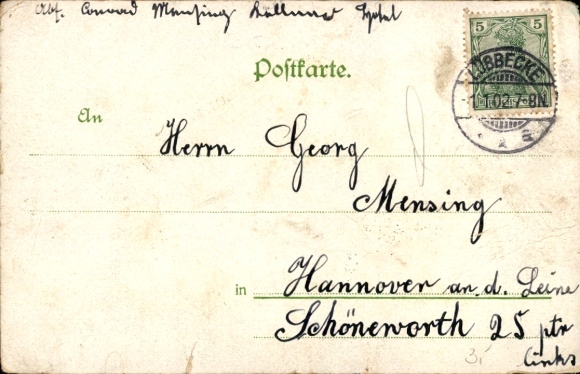 Abs. Conrad Mensing Hotel
5 5
Postkarte.
LÜBBECKE
1.1.02.7-8N.
An
Herrn Georg
Mensing
in Hannover an. d. Leine
Schöneworth 25 ptr
links
3,